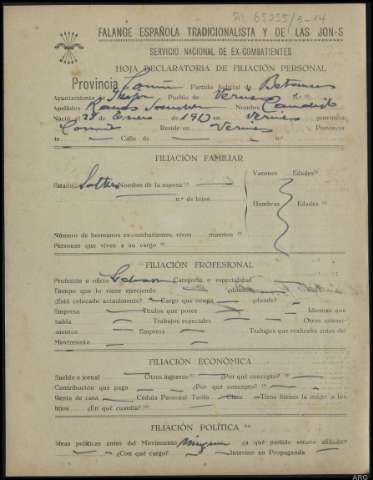 65255/3-14
FALANGE ESPAÑOLA TRADICIONALISTA Y DE LAS JON-S
SERVICIO NACIONAL DE EX-COMBATIENTES
HOJA DECLARATORIA DE FILIACIÓN PERSONAL
Provincia Coruña Partido Judicial de Betanzos
Ayuntamiento de Pueblo de
Apellidos Nombre Candido
Nació el 28 de Enero de 1913 en provincia
Coruña Reside en Provincia
Calle de
FILIACIÓN FAMILIAR
Estado Soltero Nombre de la esposa Varones Edades
n.º de hijos
Hembras Edades
Número de hermanos ex-combatientes, vivos muertos
Personas que viven a su cargo
FILIACIÓN PROFESIONAL
Profesión u oficio Labrador Categoría o especialidad
Tiempo que lo viene ejerciendo
¿Está colocado actualmente? Cargo que ocupa ¿dónde?
Empresa Títulos que posee Idiomas que
habla Trabajos especiales Otros conoci-
mientos Empresa Trabajos que realizaba antes del
Movimiento
FILIACIÓN ECONÓMICA
Sueldo o jornal Otros ingresos ¿Por qué concepto?
Contribución que paga ¿Por qué concepto?
Renta de casa Cédula Personal Tarifa Clase Tiene bienes la mujer o los
hijos ¿En qué cuantía?
FILIACIÓN POLÍTICA
Ideas políticas antes del Movimiento Ninguna ¿a qué partido estuvo afiliado?
¿Con qué cargo? Intervino en Propaganda
ARG